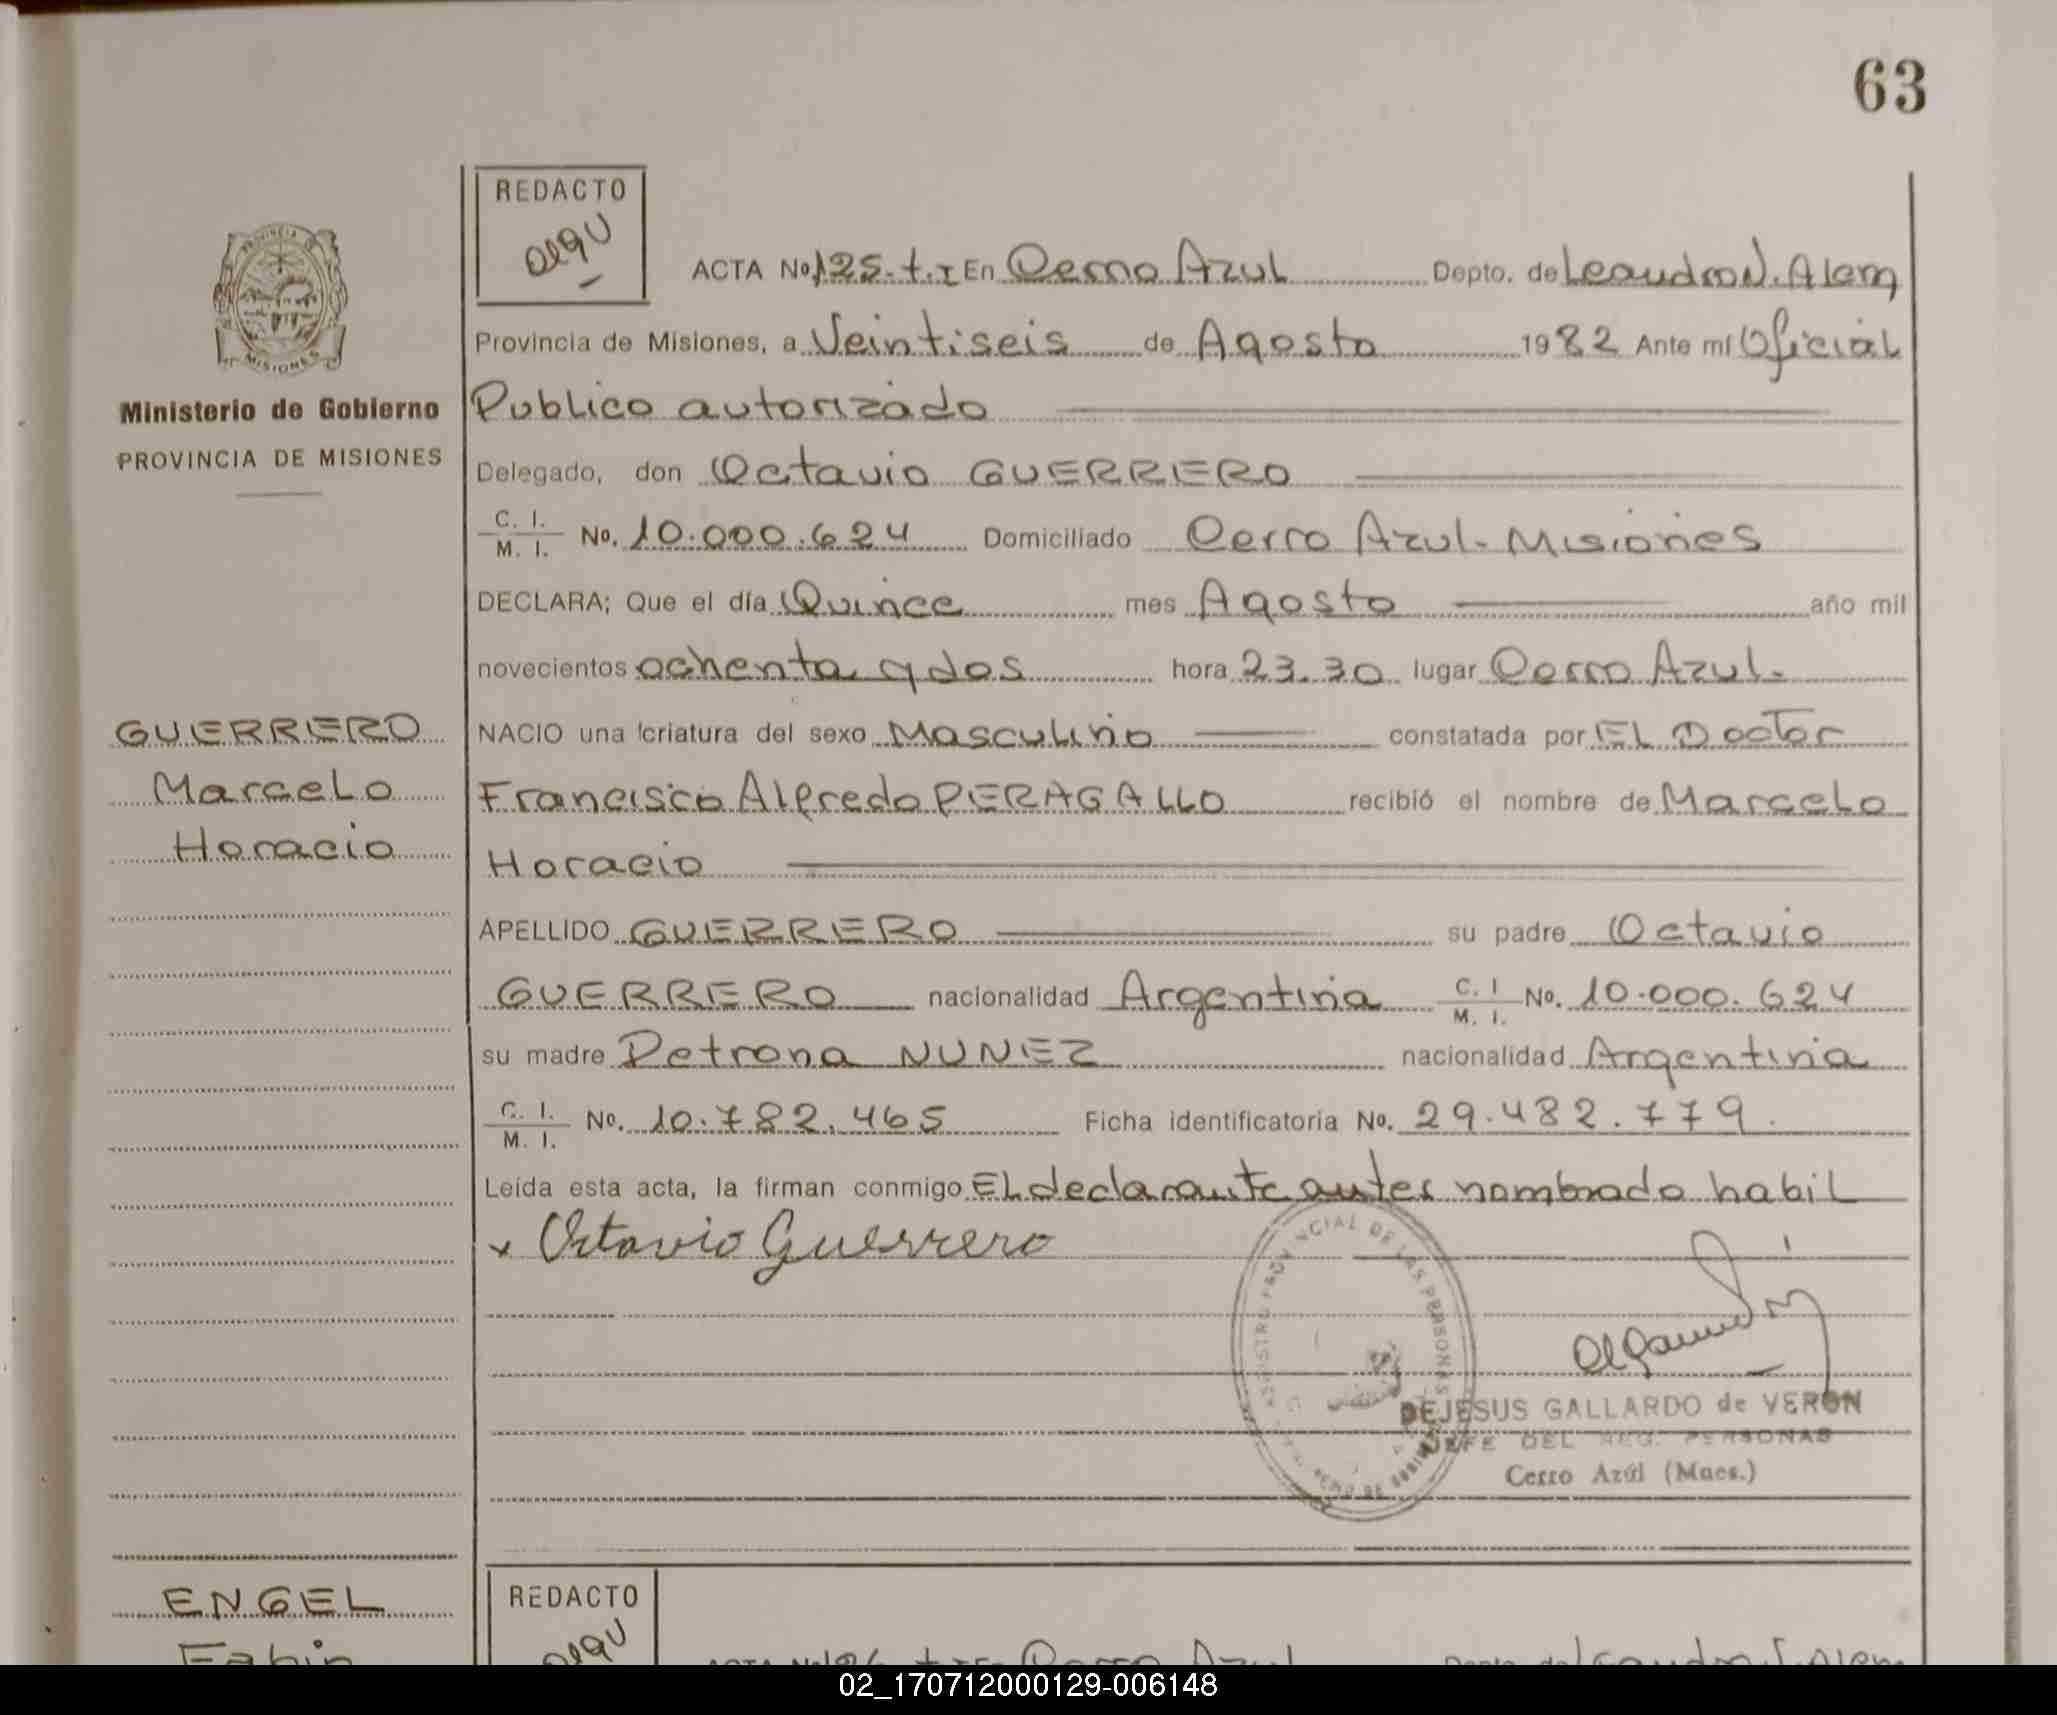 63
REDACTO
ACTA No 125.t.I En Cerro Azul Depto. de Leandro N. Alem
PROVINCIA DE
MISIONES
Provincia de Misiones, a Veintiseis de Agosto 1982 Ante mí Oficial
Ministerio de Gobierno
Publico autorizado
PROVINCIA DE MISIONES
Delegado, don Octavio GUERRERO
C. I.
M. I. No. 10.000.624 Domiciliado Cerro Azul - Misiones
DECLARA; Que el día Quince mes Agosto año mil
novecientos ochenta y dos hora 23.30 lugar Cerro Azul.
GUERRERO
Marcelo
Horacio
NACIO una criatura del sexo Masculino constatada por EL Doctor
Francisco Alfredo PERAGALLO recibió el nombre de Marcelo
Horacio
APELLIDO GUERRERO su padre Octavio
GUERRERO nacionalidad Argentina C. I. M. I. No. 10.000.624
su madre Petrona NUNEZ nacionalidad Argentina
C. I.
M. I. No. 10.782.465 Ficha identificatoria No. 29.482.779.
Leída esta acta, la firman conmigo EL declarante antes nombrado habil
x Octavio Guerrero
PROVINCIAL DE LAS PERSONAS
DEJESUS GALLARDO de VERON
JEFE DEL REG. PERSONAS
Cerro Azúl (Mnes.)
ENGEL
Fabio
REDACTO
02_170712000129-006148